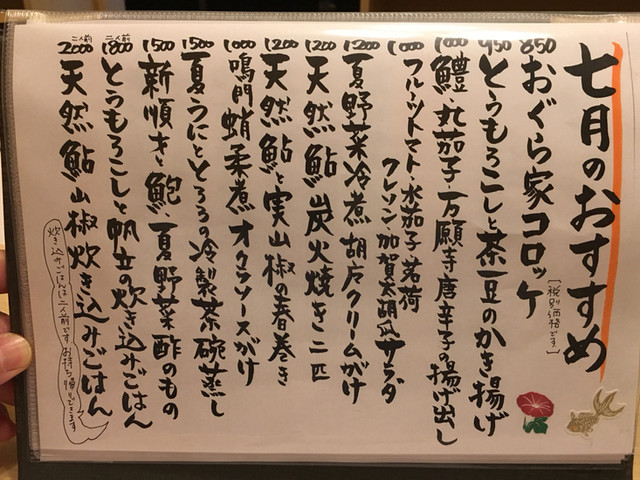 七月のおすすめ
［税別価格です。］
850 おぐら家コロッケ
950 とうもろこしと茶豆のかき揚げ
1000 鱧・丸茄子・万願寺唐辛子の揚げ出し
1000 フルーツトマト・水茄子・茗荷
クレソン・加賀太胡瓜サラダ
1200 夏野菜冷煮 胡麻クリームがけ
1200 天然鮎炭火焼き二匹
1200 天然鮎と実山椒の春巻き
1000 鳴門蛸柔煮 オクラソースがけ
1500 夏うにととろろの冷製茶碗蒸し
1500 新順才と鮑、夏野菜酢のもの
二人前 1800 とうもろこしと帆立の炊き込みごはん
二人前 2000 天然鮎山椒炊き込みごはん
炊き込みごはんは二人前です お持ち帰りできます